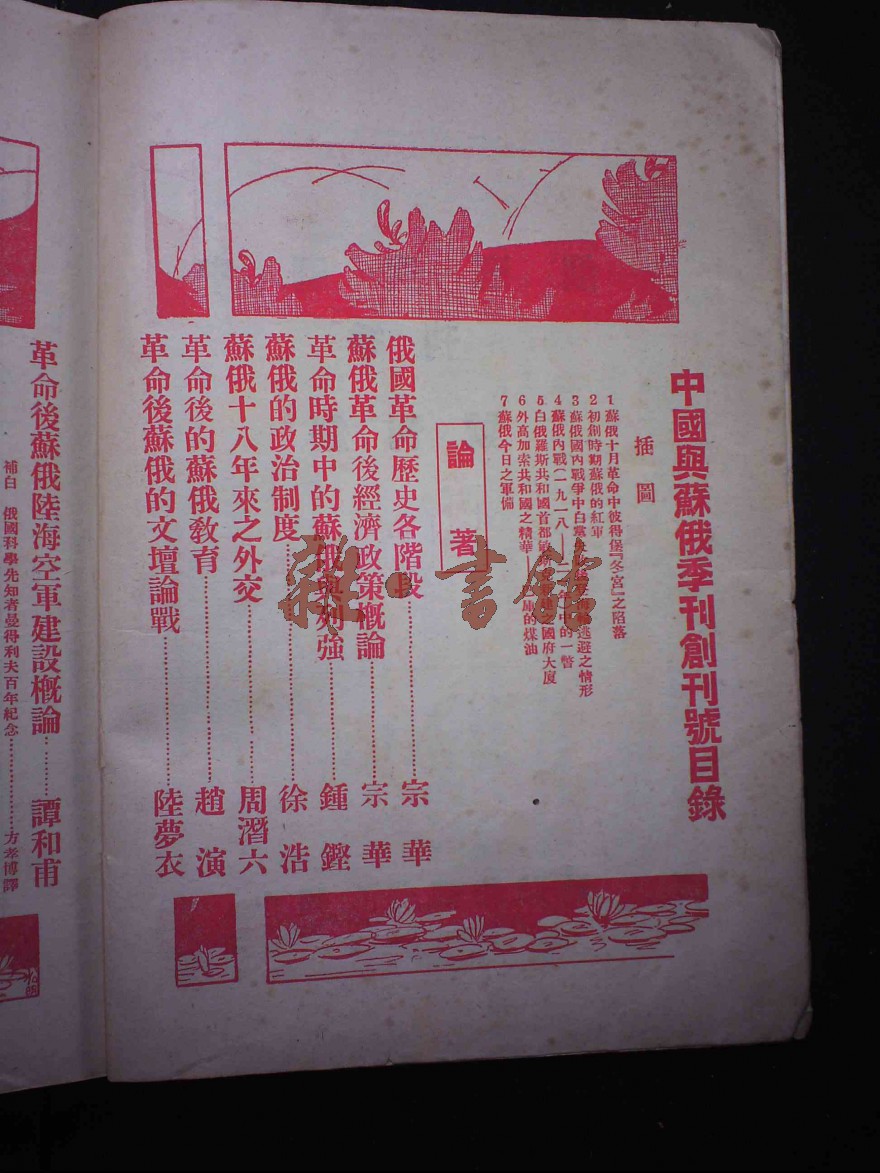 中國與蘇俄季刊創刊號目錄
插圖
1 蘇俄十月革命中彼得堡『冬宮』之陷落
2 初創時期蘇俄的紅軍
3 蘇俄國內戰爭中白黨逃避之情形
4 蘇俄內戰(一九一八——二一年)中的一瞥
5 白俄羅斯共和國首都之國府大廈
6 外高加索共和國之精華——庫的煤油
7 蘇俄今日之軍備
論著
俄國革命歷史各階段 宗華
蘇俄革命後經濟政策概論 宗華
革命時期中的蘇俄與列強 鍾鏗
蘇俄的政治制度 徐浩
蘇俄十八年來之外交 周潛六
革命後的蘇俄教育 趙演
革命後蘇俄的文壇論戰 陸夢衣
革命後蘇俄陸海空軍建設概論 譚和甫
補白 俄國科學先知者曼得利夫百年紀念 方孝博譯
雜·書館